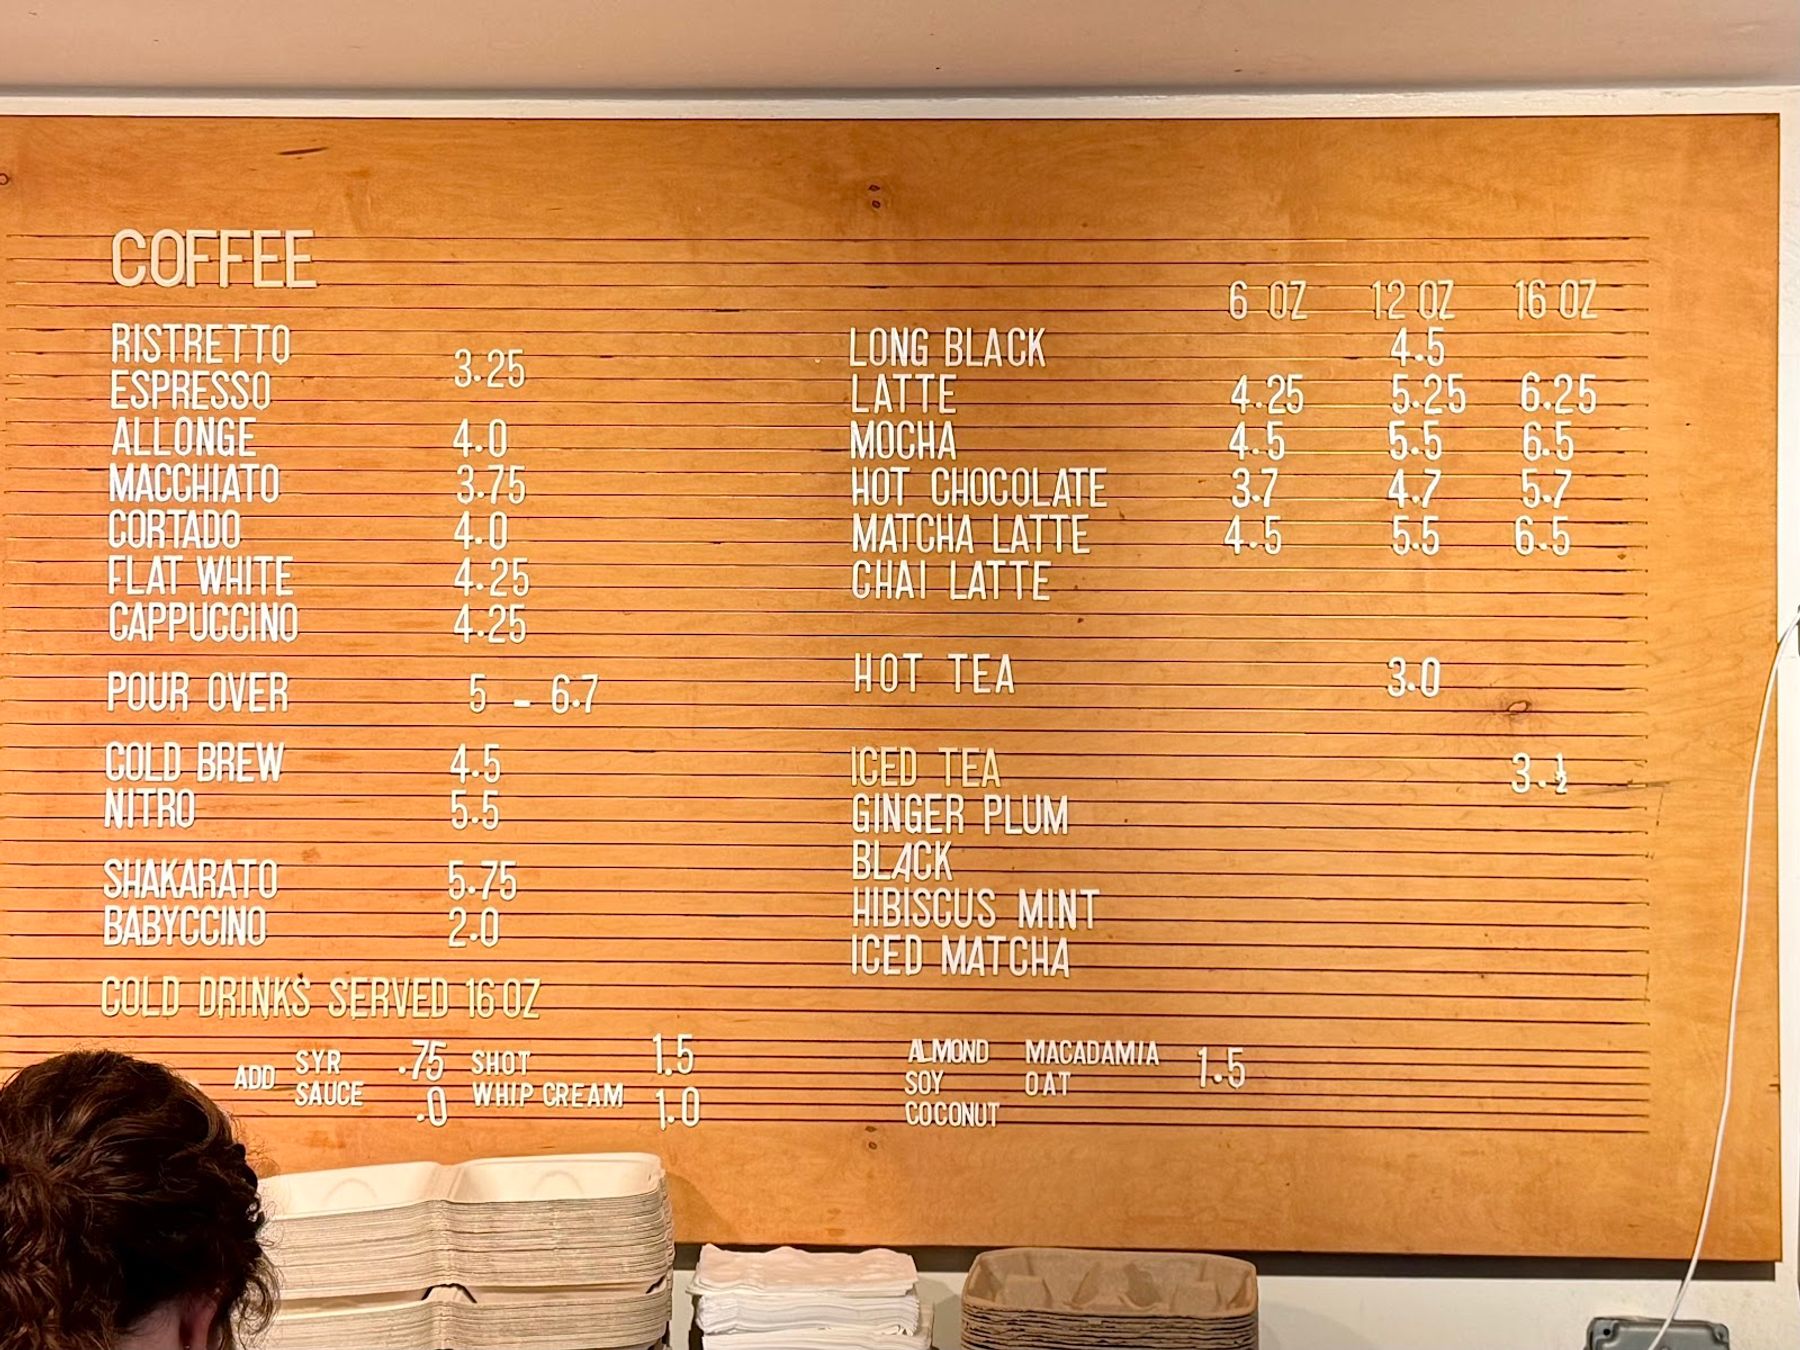 COFFEE
RISTRETTO
3.25
ESPRESSO
ALLONGE 4.0
MACCHIATO 3.75
CORTADO 4.0
FLAT WHITE 4.25
CAPPUCCINO 4.25
POUR OVER 5 - 6.7
COLD BREW 4.5
NITRO 5.5
SHAKARATO 5.75
BABYCCINO 2.0
COLD DRINKS SERVED 16 OZ
ADD
SYR .75
SAUCE .0
SHOT 1.5
WHIP CREAM 1.0
6 OZ 12 OZ 16 OZ
LONG BLACK 4.5
LATTE 4.25 5.25 6.25
MOCHA 4.5 5.5 6.5
HOT CHOCOLATE 3.7 4.7 5.7
MATCHA LATTE 4.5 5.5 6.5
CHAI LATTE
HOT TEA 3.0
ICED TEA 3.½
GINGER PLUM
BLACK
HIBISCUS MINT
ICED MATCHA
ALMOND MACADAMIA 1.5
SOY OAT
COCONUT